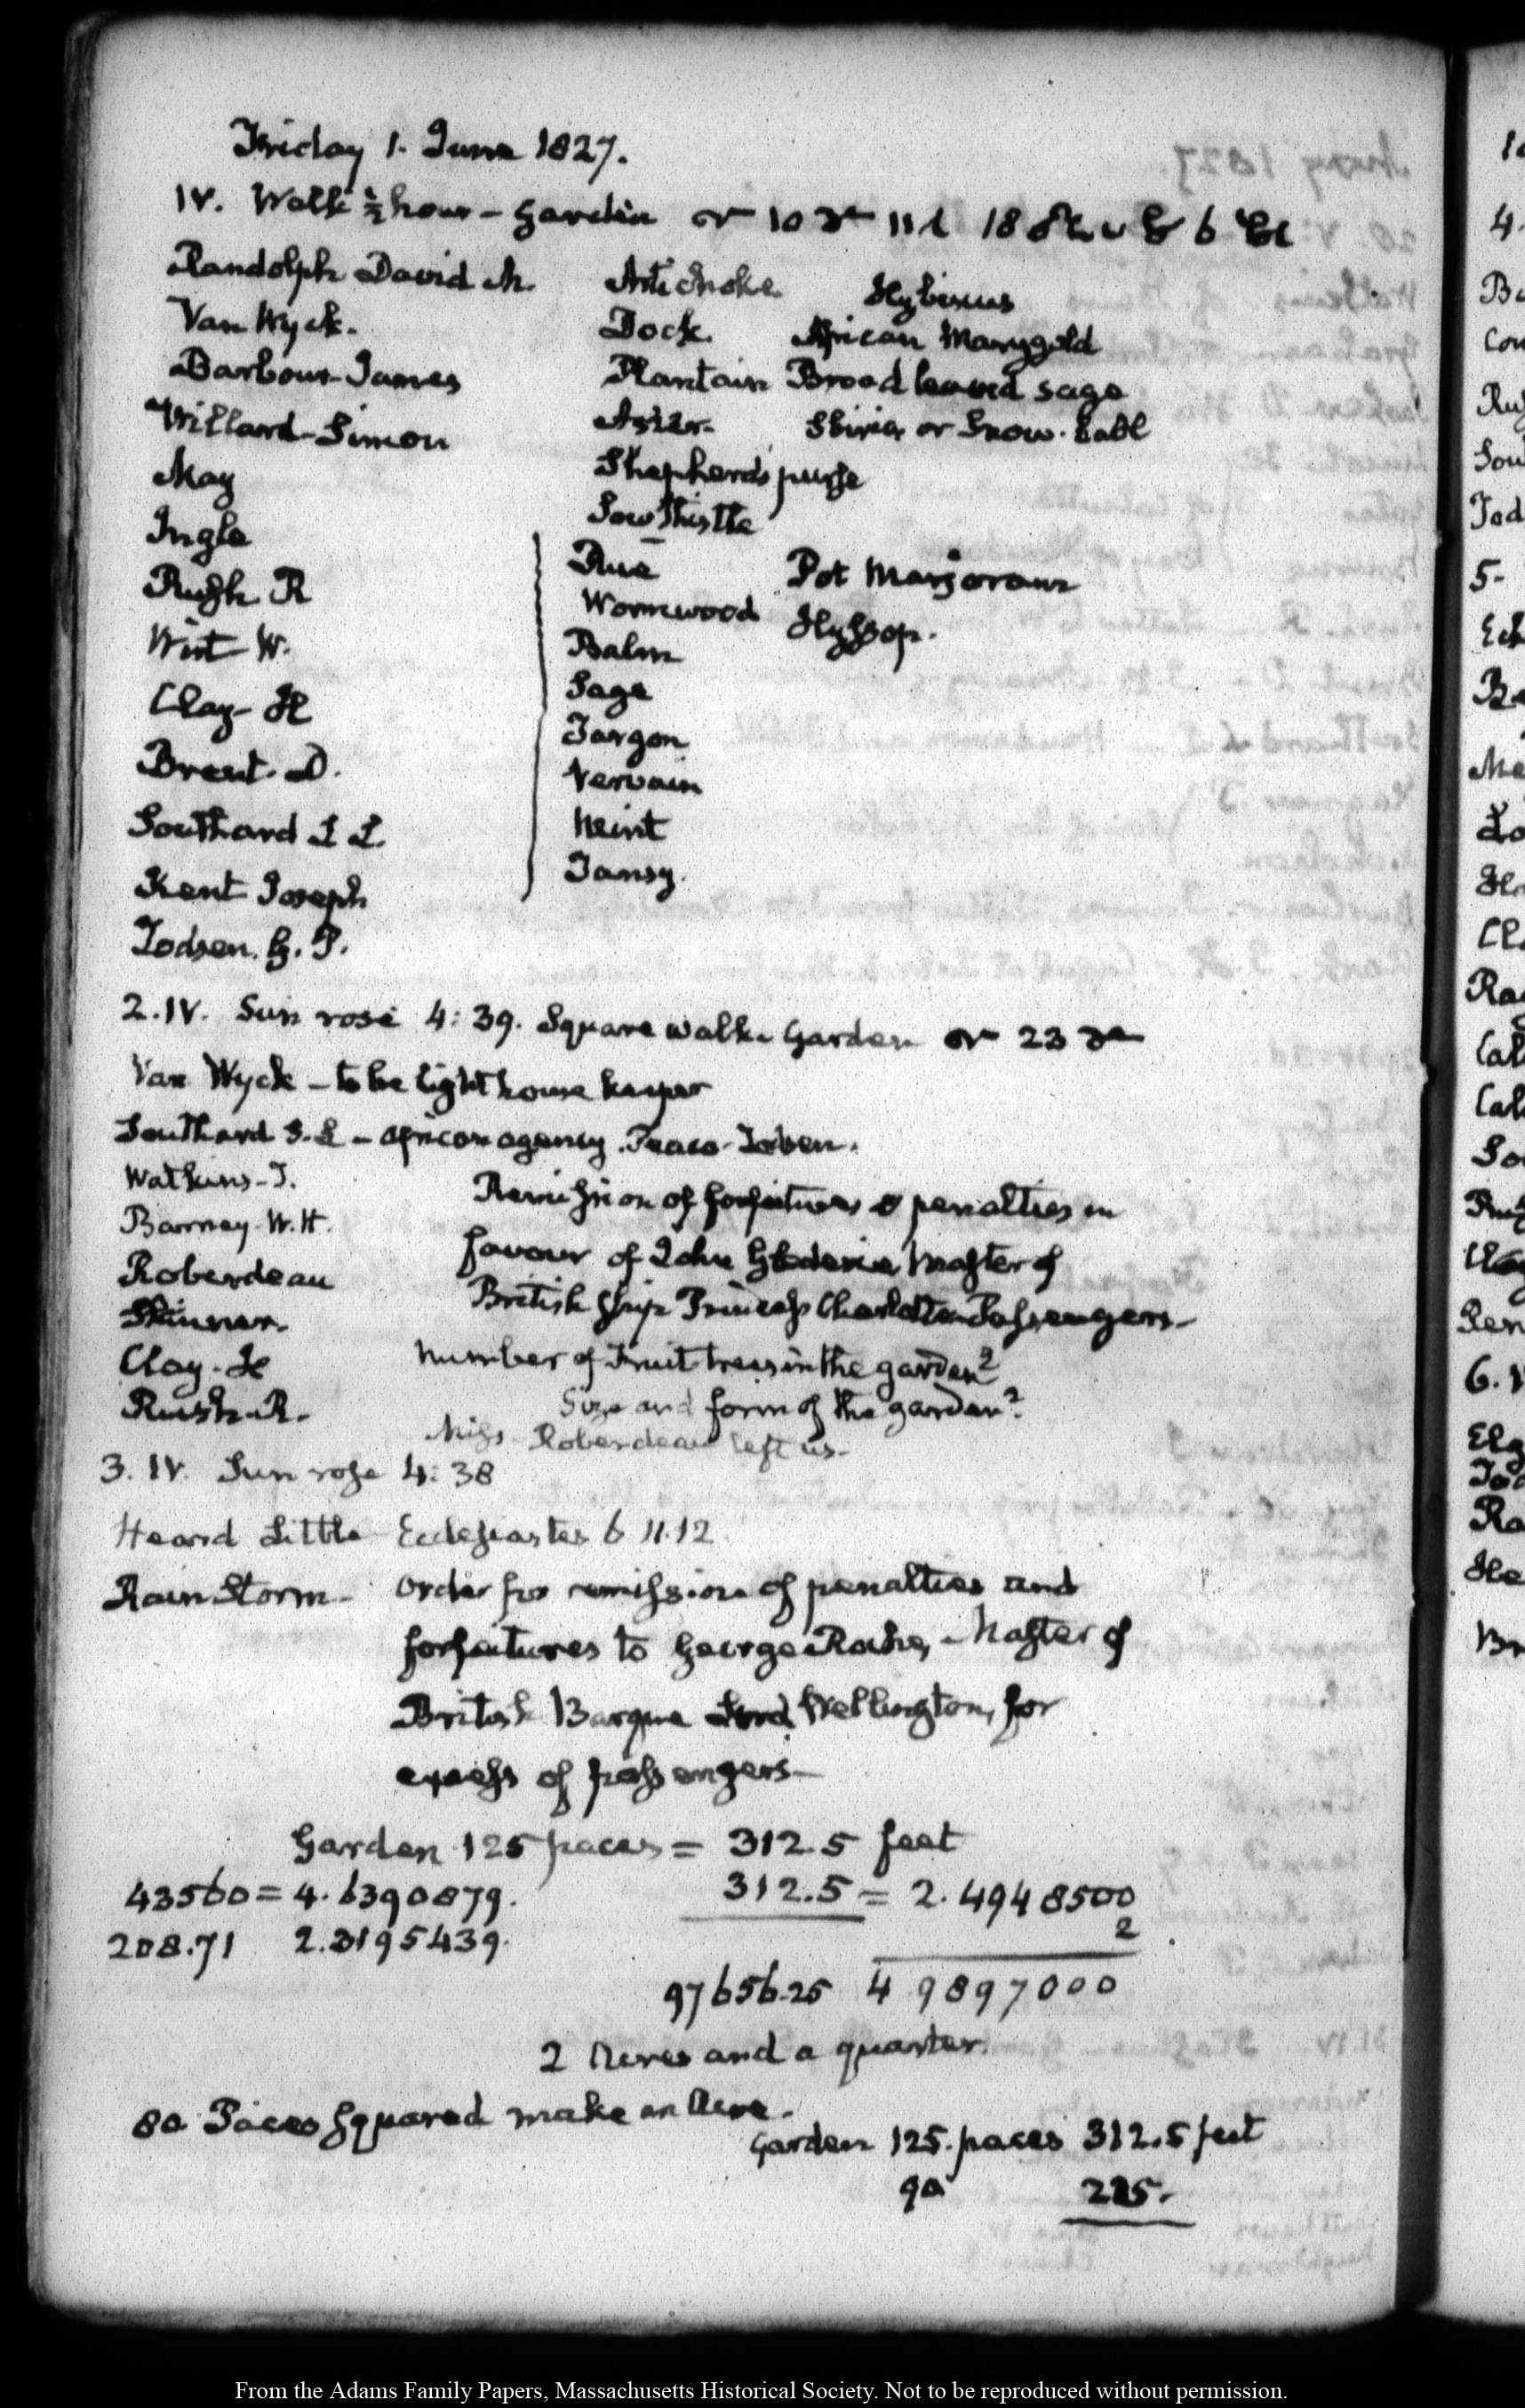 Friday 1. June 1827.
IV. Walk ½ hour - Garden
Randolph David M. Artichoke Hybiscus
Van Wyck. Dock. African Marygold
Barbour James Plantain Broad leaved sage
Willard Simon Aster. or Snow-ball
May Shepherds purse
Ingle Sow Thistle
Rush R Rue Pot Marjoram
Wirt W. Wormwood Hyssop.
Clay H Balm
Brent D. Sage
Southard S L. Targon
Kent Joseph Vervain
Todsen. G. P. Mint
Tansy.
2. IV. Sun rose 4:39. Square walk. Garden
Van Wyck - to be light house keeper
Southard S. L - African agency.
Watkins - T. Remission of forfeitures & penalties in
Barney W. H. favour of John Master of
Roberdeau British ship Princess Charlotte Passengers-
Skinner. Number of Fruit trees in the garden?
Clay. H Size and form of the garden?
Rush. R. Miss Roberdeau left us-
3. IV. Sun rose 4:38
Heard Little Ecclesiastes 6 11.12
Rain Storm- Order for remission of penalties and
forfeitures to George Master of
British Barque Wellington, for
excess of passengers-
Garden 125 paces = 312.5 feet
43560 = 4.6390879. 312.5 = 2.4948500
208.71 2.3195439. 2
97656.25 4 9897000
2 Acres and a quarter.
80 Paces squared make an Acre.
Garden 125. paces 312.5 feet
90 225.
From the Adams Family Papers, Massachusetts Historical Society. Not to be reproduced without permission.